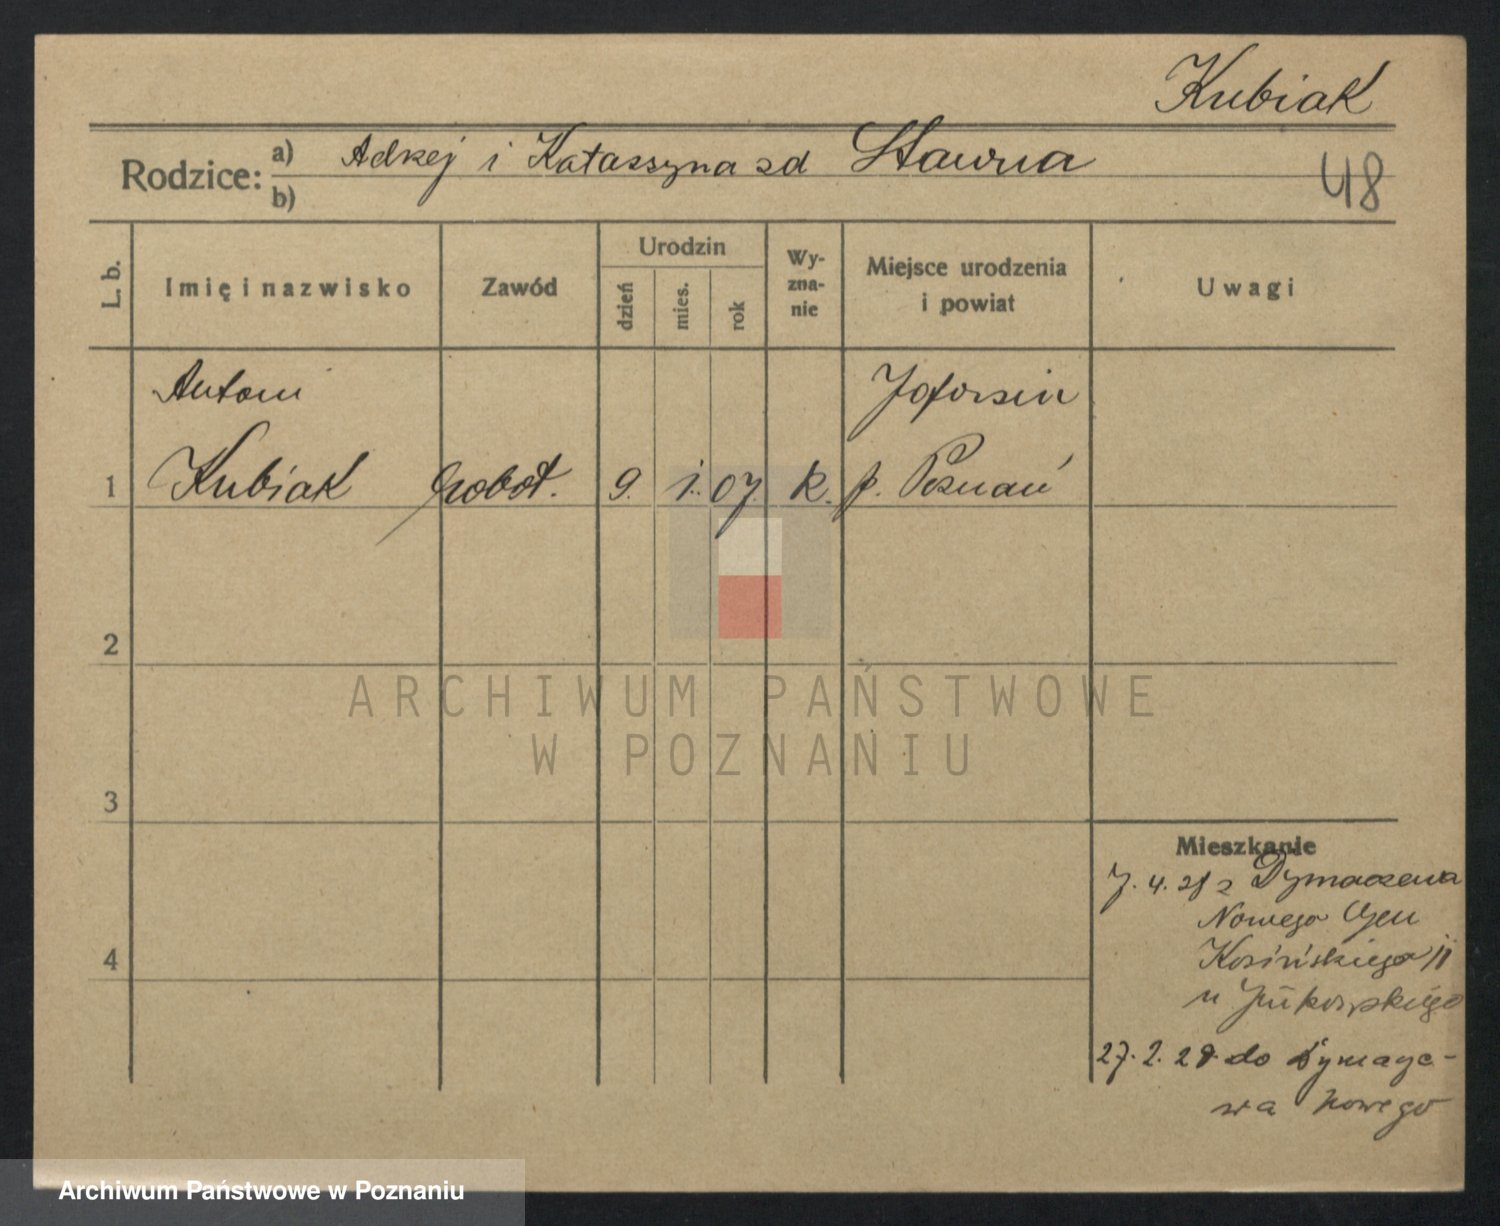 Kubiak
Rodzice: a) Adrzej i Katarzyna zd Sławna
b)
48
L. b.
Imię i nazwisko
Zawód
Urodzin
dzień
mies.
rok
Wy-
zna-
nie
Miejsce urodzenia
i powiat
Uwagi
Antoni
1 Kubiak robot. 9. 1. 07. k. p. Poznań
2
ARCHIWUM PAŃSTWOWE
W POZNANIU
3
Mieszkanie
7. 4. 28 z Dymaczewa
Nowego
4
Kosińskiego 11
u
27. 2. 29. do Dymacze-
wa Nowego
Archiwum Państwowe w Poznaniu